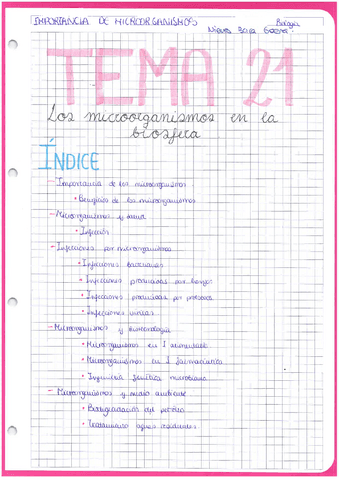 IMPORTANCIA DE MICROORGANISMOS
Biología
Nieves
TEMA 21
Los microorganismos en la
biosfera
ÍNDICE
- Importancia de los microorganismos
• Beneficios de los microorganismos
- Microorganismos y salud
• Infección
- Infecciones por microorganismos
• Infecciones bacterianas
• Infecciones producidas por hongos
• Infecciones producidas por protozoos
• Infecciones víricas
- Microorganismos y biotecnología
• Microorganismos en I alimentaria
• Microorganismos en I farmacéutica
• Ingeniería genética microbiana
- Microorganismos y medio ambiente
• Biodegradación del petróleo
• Tratamiento aguas residuales